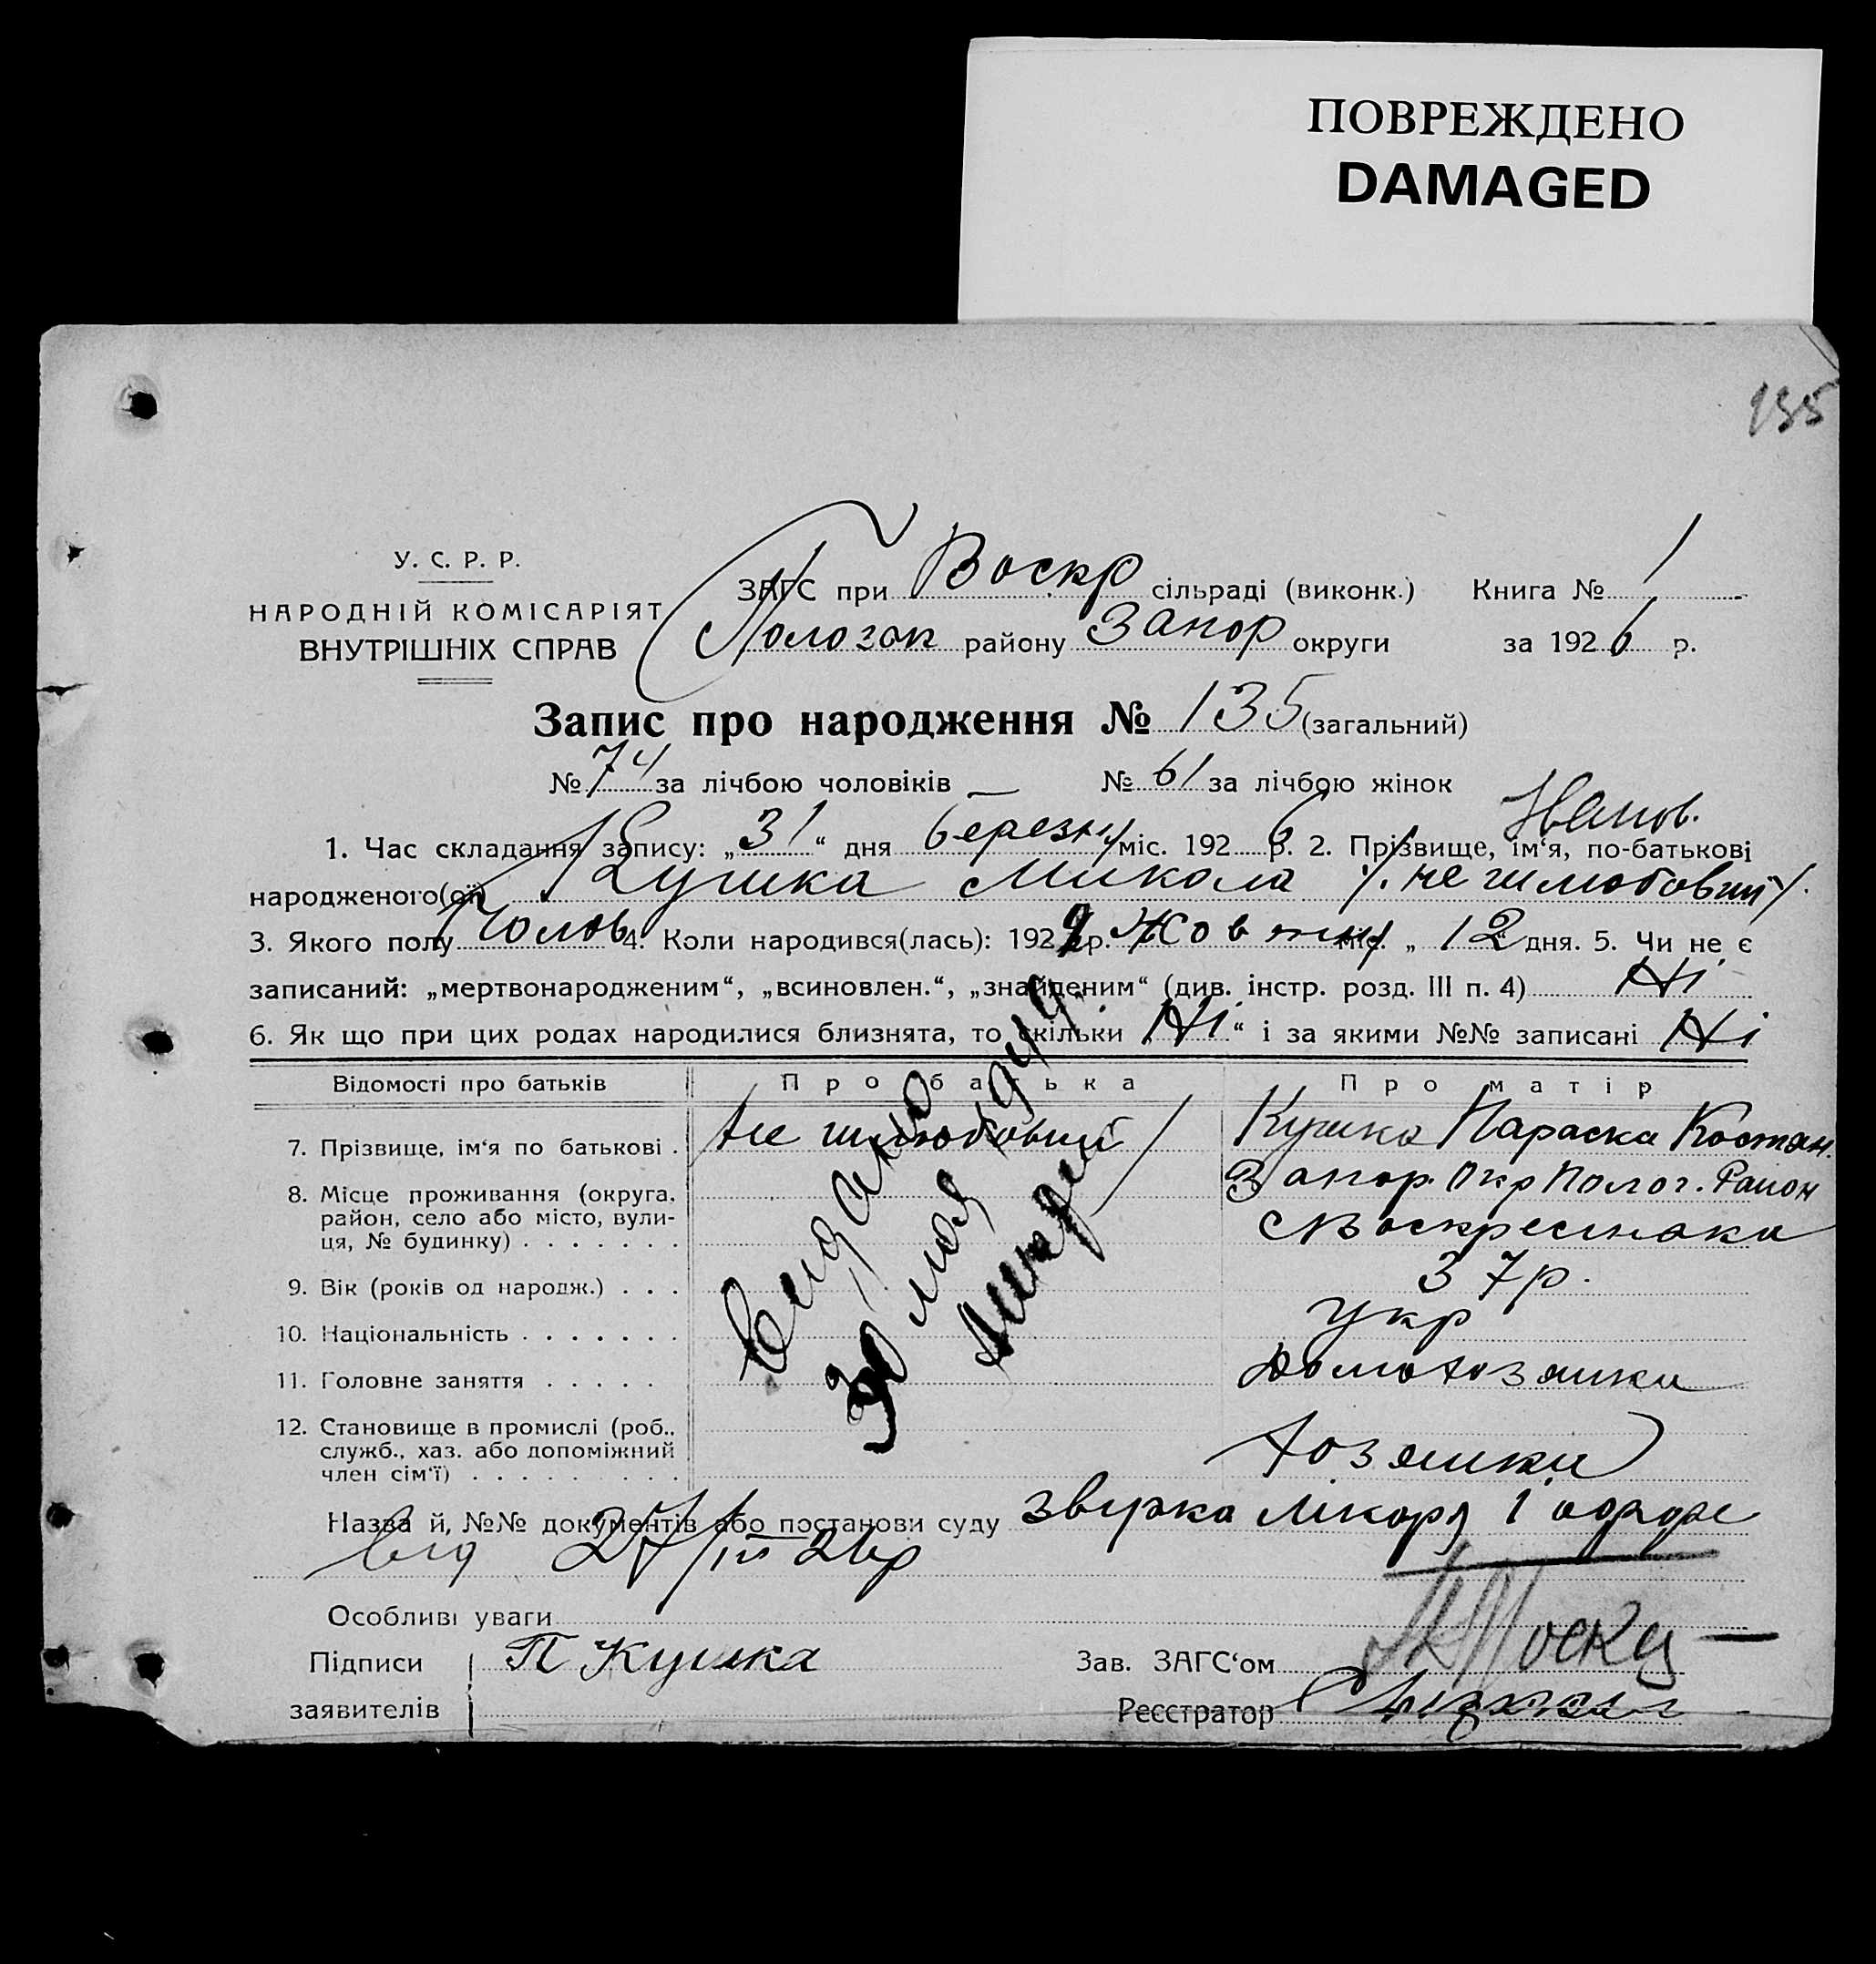 ПОВРЕЖДЕНО
DAMAGED
135
У. С. Р. Р.
НАРОДНІЙ КОМІСАРІЯТ
ВНУТРІШНІХ СПРАВ
ЗАГС при Воскр сільраді (виконк.) Книга № 1
Пологак району Запор округи за 1926 р.
Запис про народження № 135 (загальний)
№ 74 за лічбою чоловіків — № 61 за лічбою жінок
Иванов.
1. Час складання запису: „31“ дня березня міс. 1926 р. 2. Прізвище, ім‘я, по-батькові
народженого(ої) Кушка Микола /. не шлюбовий /.
3. Якого полу Чолов 4. Коли народився(лась): 192 р. Жовтня міс. „12“ дня. 5. Чи не є
записаний: „мертвонародженим“, „всиновлен.“, „знайденим“ (див. інстр. розд. III п. 4) Ні
6. Як що при цих родах народилися близнята, то скільки „Ні“ і за якими №№ записані Ні
Відомості про батьків Про батька Про матір
7. Прізвище, ім‘я по батькові . Не шлюбовий Кушка Параска Костян.
8. Місце проживання (округа, район, село або місто, вули-ця, № будинку) . . . . . . . Запор. Окр Полог. Район
с Воскресенка
9. Вік (років од народж.) . . . 37 р.
10. Національність . . . . . . . Укр
11. Головне заняття . . . . . Домохозяйка
12. Становище в промислі (роб., служб., хаз. або допоміжний член сім‘ї) . . . . . . . . . хозяйка
Видано
30 мая
Назва й, №№ документів або постанови суду звірка лікаря і
від 27/III 26р
Особливі уваги
Підписи П Кушка Зав. ЗАГС‘ом
заявителів Реєстратор